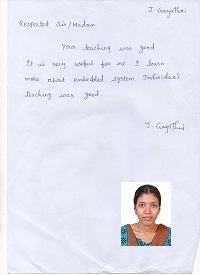 J. Gayathri
Respected Sir/Madam
Your teaching was good.
It is very useful for me I learn
more about embedded system. Individual
teaching was good.
J. Gayathri